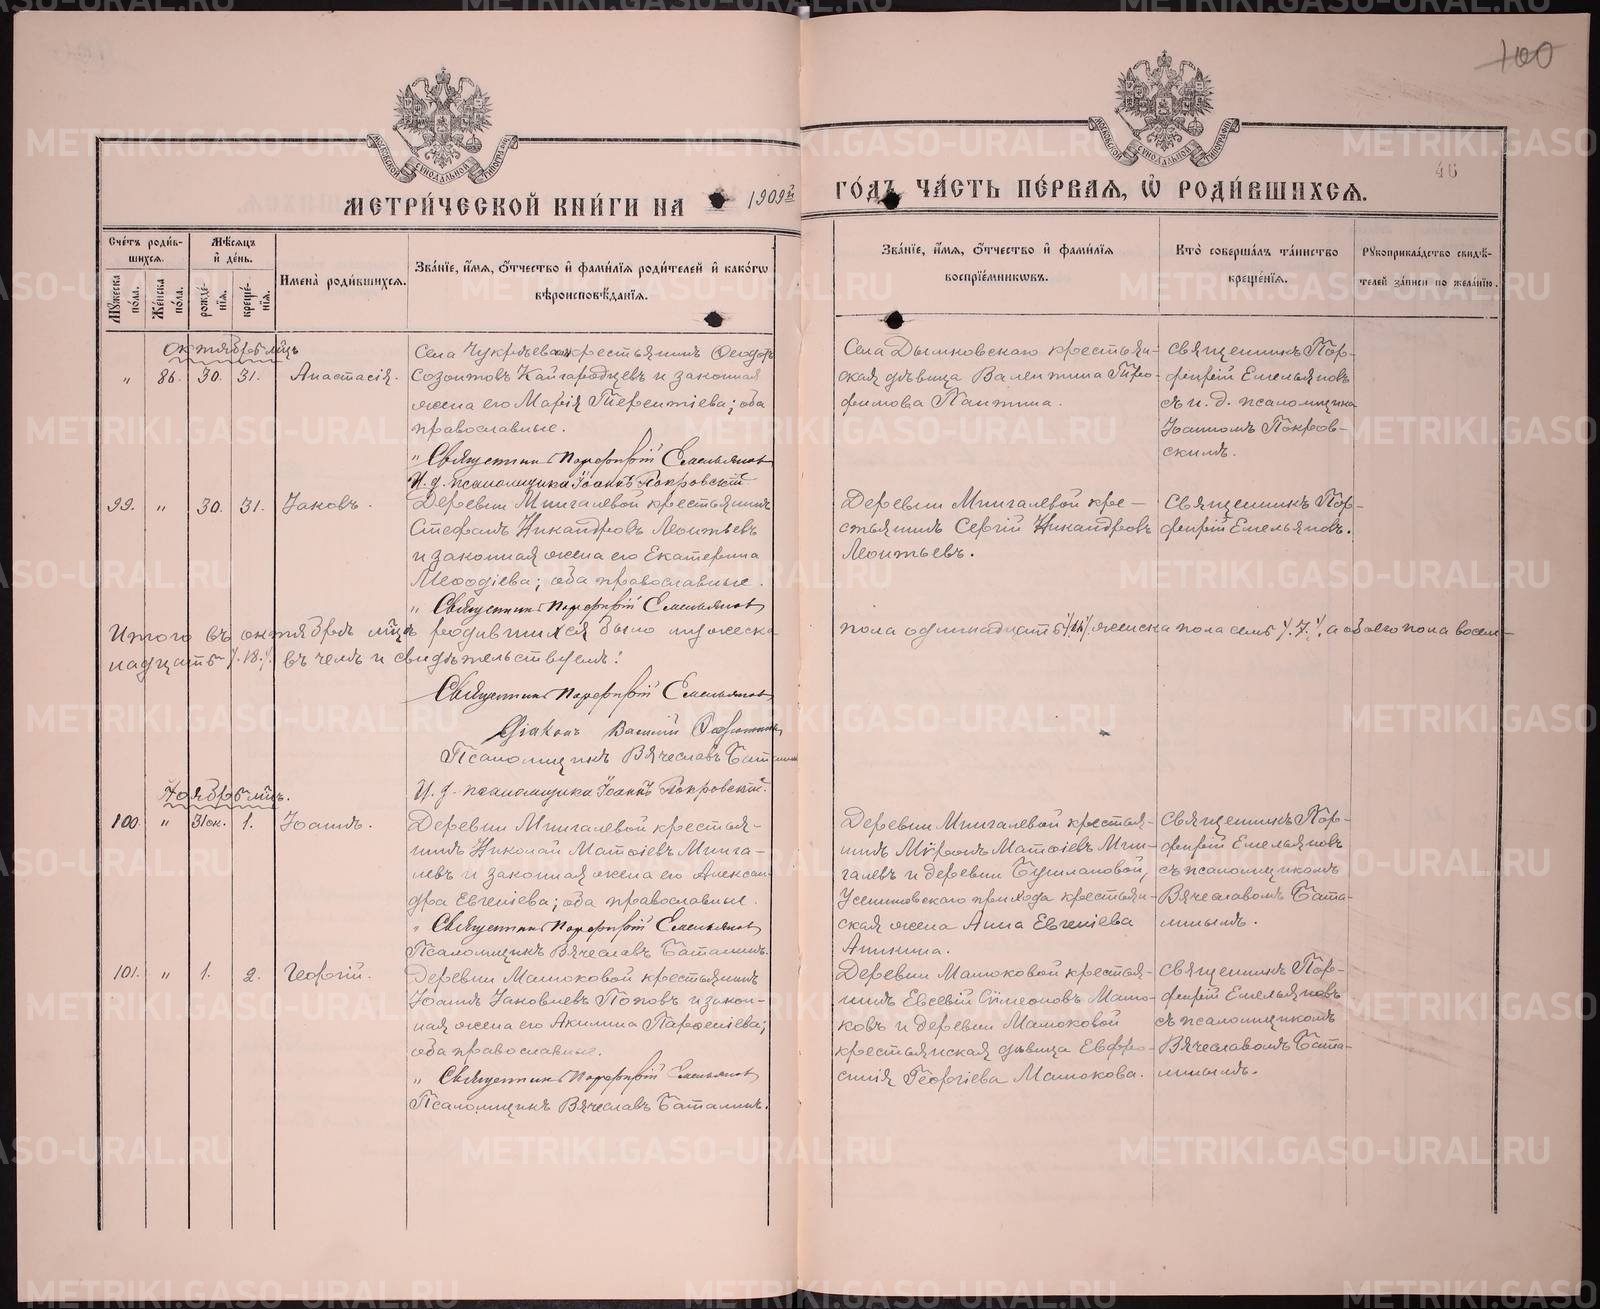 100
46
МЕТРИ́ЧЕСКОЙ КНИ́ГИ НА 1909й
ГО́ДЪ ЧА́СТЬ ПЕ́РВАѦ, Ѡ҆ РОДИ́ВШИХСѦ.
Сче́тъ роди́в-
шихсѧ.
Мѣ́сѧцъ
и҆ де́нь.
Мꙋ́жеска по́ла.
Же́нска по́ла.
рожде́-
нїѧ.
креще́-
нїѧ.
Имена̀ роди́вшихсѧ.
Зва́нїе, и҆́мѧ, ѻ҆́тчество и҆ фами́лїѧ роди́телей и҆ како́гѡ
вѣроисповѣ́данїѧ.
Зва́нїе, и҆́мѧ, ѻ҆́тчество и҆ фами́лїѧ
воспрїе́мниковъ.
Кто̀ соверша́лъ та́инство
креще́нїѧ.
Рꙋкоприкла́дство свидѣ́-
телей за́писи по жела́нїю.
Октябрь м-цъ
" 86. 30. 31. Анастасія.
крестьянинъ Ѳеодоръ
Созонтовъ Кайгародцевъ и законная
жена его Марія Терентіева; оба
православные.
" Священникъ Порфирій Емельяновъ
И. д. псаломщика Іоаннъ Покровскій.
Села Дымковскаго крестьян-
ская дѣвица Валентина
фимова
Священникъ Пор-
фирій Емельяновъ
съ и. д. псаломщика
Іоанномъ Покров-
скимъ.
99. " 30. 31. Іаковъ.
Деревни Мингалевой крестьянинъ
Стефанъ Никандровъ Леонтьевъ
и законная жена его Екатерина
Меѳодіева; оба православные.
" Священникъ Порфирій Емельяновъ
Деревни Мингалевой кре-
стьянинъ Сергій Никандровъ
Леонтьевъ.
Священникъ Пор-
фирій Емельяновъ.
Итого въ октябрѣ м-цѣ родившихся было мужеска
пола одиннадцать /11/, женска пола семь /.7./, а обоего пола восем-
надцать /.18./. въ чемъ и свидѣтельствуемъ:
Священникъ Порфирій Емельяновъ
Діаконъ Василій
Псаломщикъ Вячеславъ Баталинъ
И. д. псаломщика Іоаннъ Покровскій.
Ноябрь м-цъ.
100 " 31 ок. 1. Іоаннъ.
Деревни Мингалевой крестья-
нинъ Николай Матѳіевъ Минга-
левъ и законная жена его Алексан-
дра Евгеніева; оба православные.
" Священникъ Порфирій Емельяновъ
Псаломщикъ Вячеславъ Баталинъ.
Деревни Мингалевой крестья-
нинъ Мѵронъ Матѳіевъ Мин-
галевъ и деревни
прихода крестьян-
ская жена Анна Евгеніева
Аникина.
Священникъ Пор-
фирій Емельяновъ
съ псаломщикомъ
Вячеславомъ Бата-
линымъ.
101. " 1. 2. Георгій.
Деревни Мамоковой крестьянинъ
Іоаннъ Іаковлевъ Поповъ и закон-
ная жена его Акилина Парѳеніева;
оба православные.
" Священникъ Порфирій Емельяновъ
Псаломщикъ Вячеславъ Баталинъ.
Деревни Мамоковой крестья-
нинъ Евсевій Сѵмеоновъ Мамо-
ковъ и деревни Мамоковой
крестьянская дѣвица Евфро-
синія Георгіева Мамокова.
Священникъ Пор-
фирій Емельяновъ
съ псаломщикомъ
Вячеславомъ Бата-
линымъ.
METRIKI.GASO-URAL.RU